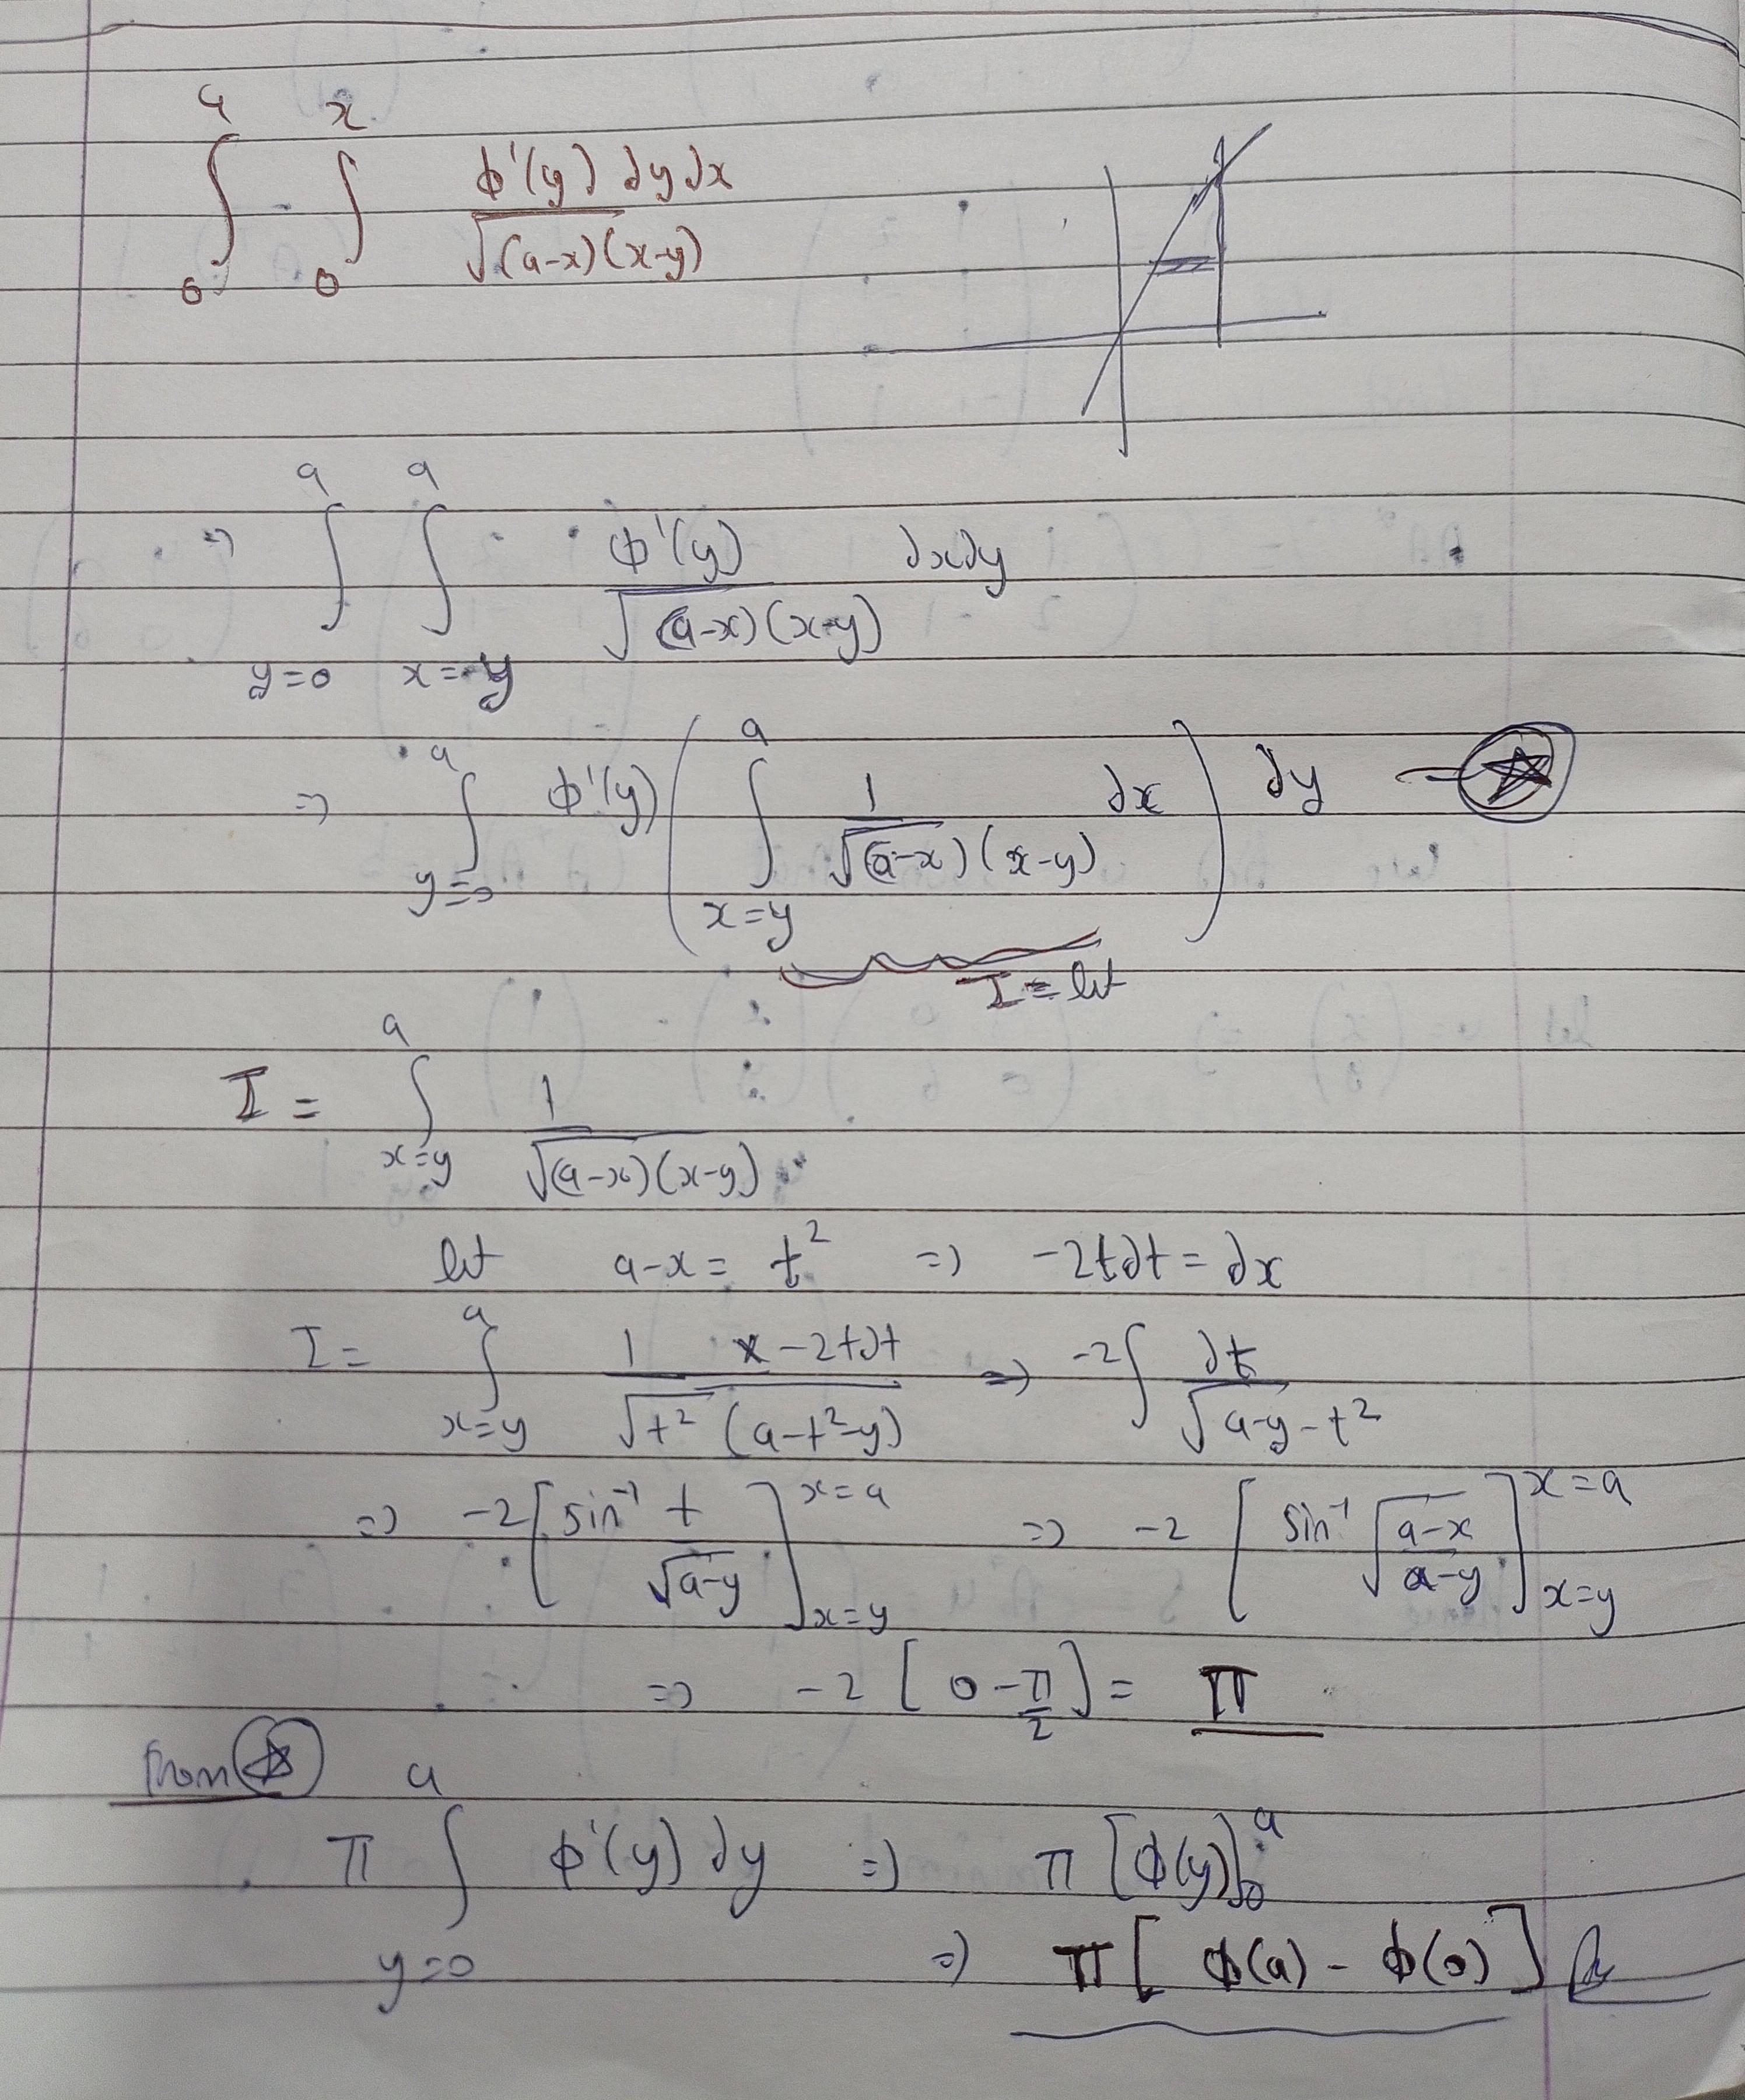 ∫₀ᵃ ∫₀ˣ φ'(y) dy dx / √(a-x)(x-y)
⇒ ∫_{y=0}^{a} ∫_{x=y}^{a} φ'(y) / √(a-x)(x-y) dx dy
⇒ ∫_{y=0}^{a} φ'(y) ( ∫_{x=y}^{a} 1 / √(a-x)(x-y) dx ) dy — ☆
I = let
I = ∫_{x=y}^{a} 1 / √(a-x)(x-y)
let a-x = t² ⇒ -2tdt = dx
I = ∫_{x=y}^{a} 1 × -2tdt / √t² (a-t²-y) ⇒ -2∫ dt / √a-y-t²
⇒ -2 [ sin⁻¹ t / √a-y ]_{x=y}^{x=a} ⇒ -2 [ sin⁻¹ √(a-x / a-y) ]_{x=y}^{x=a}
⇒ -2 [ 0 - π/2 ] = π
from ☆
π ∫_{y=0}^{a} φ'(y) dy ⇒ π [φ(y)]₀ᵃ
⇒ π [ φ(a) - φ(0) ]